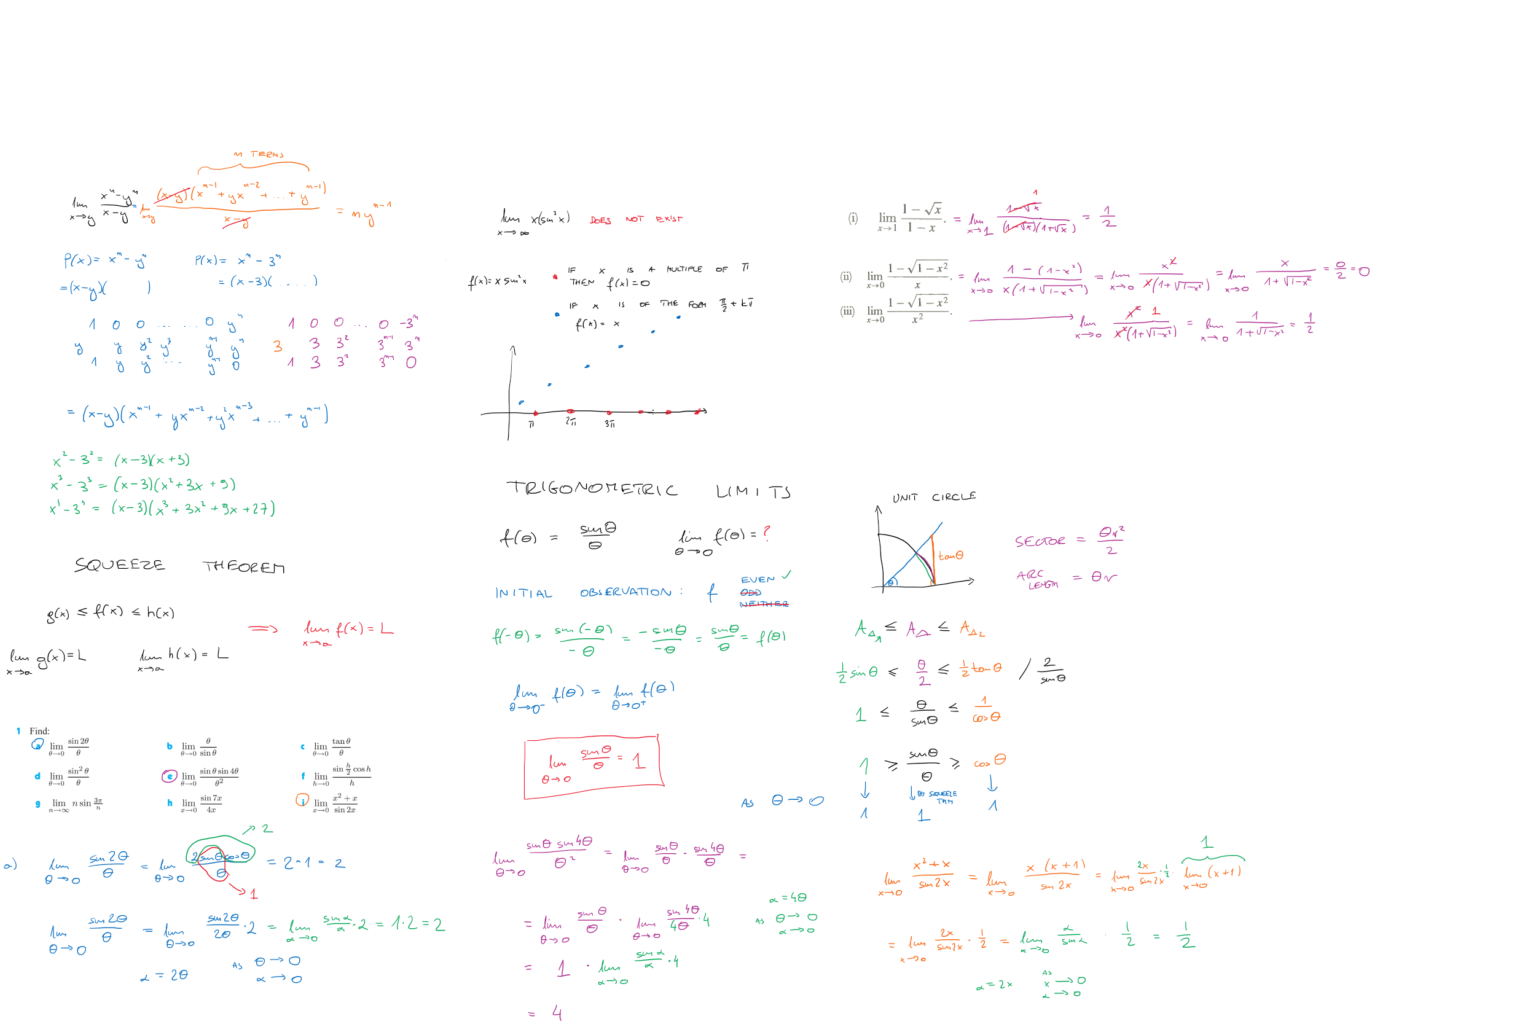 n TERMS
lim x→y (xⁿ-yⁿ)/(x-y) = lim x→y (x-y)(xⁿ⁻¹+yxⁿ⁻²+...+yⁿ⁻¹)/(x-y) = nyⁿ⁻¹
P(x)= xⁿ-yⁿ
=(x-y)( )
P(x)= xⁿ-3ⁿ
=(x-3)(.....)
1 0 0 ... ... 0 yⁿ
y y y² y³ yⁿ⁻¹ yⁿ
1 y y² ... yⁿ⁻¹ 0
1 0 0 ... 0 -3ⁿ
3 3 3² 3ⁿ⁻¹ 3ⁿ
1 3 3² 3ⁿ⁻¹ 0
= (x-y)(xⁿ⁻¹ + yxⁿ⁻² + y²xⁿ⁻³ + ... + yⁿ⁻¹)
x²-3² = (x-3)(x+3)
x³-3³ = (x-3)(x²+3x+9)
= (x-3)(x³+3x²+9x+27)
SQUEEZE THEOREM
g(x) ≤ f(x) ≤ h(x)
⟹ lim x→a f(x) = L
lim x→a g(x)=L lim x→a h(x) = L
1 Find:
a lim θ→0 sin 2θ/θ b lim θ→0 θ/sin θ c lim θ→0 tan θ/θ
d lim θ→0 sin² θ/θ e lim θ→0 sin θ sin 4θ/θ² f lim h→0 sin h/2 cos h/h
g lim n→∞ n sin 3π/n h lim x→0 sin 7x/4x i lim x→0 (x²+x)/sin 2x
→ 2
a) lim θ→0 sin2θ/θ = lim θ→0 2sinθcosθ/θ = 2·1 = 2
→ 1
lim θ→0 sin2θ/θ = lim θ→0 sin2θ/2θ · 2 = lim α→0 sinα/α · 2 = 1·2 = 2
α = 2θ AS θ→0
α→0
lim x→∞ x(sin²x) DOES NOT EXIST
f(x)= x sin²x
IF x IS A MULTIPLE OF π
THEN f(x)=0
IF x IS OF THE FORM π/2 + kπ
f(x) = x
π 2π 3π
TRIGONOMETRIC LIMITS
f(θ) = sinθ/θ lim θ→0 f(θ) = ?
INITIAL OBSERVATION: f
EVEN ✓
ODD
NEITHER
f(-θ) = sin(-θ)/-θ = -sinθ/-θ = sinθ/θ = f(θ)
lim θ→0⁻ f(θ) = lim θ→0⁺ f(θ)
lim θ→0 sinθ/θ = 1
AS θ→0
lim θ→0 sinθ sin4θ/θ² = lim θ→0 sinθ/θ · sin4θ/θ =
= lim θ→0 sinθ/θ · lim θ→0 sin4θ/4θ · 4
α=4θ
AS θ→0
α→0
= 1 · lim α→0 sinα/α · 4
= 4
(i) lim x→1 (1-√x)/(1-x). = lim x→1 (1-√x)/(1-√x)(1+√x) = 1/2
1
(ii) lim x→0 (1-√(1-x²))/x. = lim x→0 (1-(1-x²))/x(1+√(1-x²)) = lim x→0 x²/x(1+√(1-x²)) = lim x→0 x/(1+√(1-x²)) = 0/2 = 0
(iii) lim x→0 (1-√(1-x²))/x². → lim x→0 x² 1/x²(1+√(1-x²)) = lim x→0 1/(1+√(1-x²)) = 1/2
UNIT CIRCLE
tanθ
θ
SECTOR = θr²/2
ARC LENGTH = θr
A△₁ ≤ A ≤ A△₂
1/2 sinθ ≤ θ/2 ≤ 1/2 tanθ / 2/sinθ
1 ≤ θ/sinθ ≤ 1/cosθ
1 ≥ sinθ/θ ≥ cosθ
↓ ↓ BY SQUEEZE THM ↓
1 1 1
1
lim x→0 (x²+x)/sin2x = lim x→0 x(x+1)/sin2x = lim x→0 2x/sin2x · 1/2 · lim x→0 (x+1)
= lim x→0 2x/sin2x · 1/2 = lim α→0 α/sinα · 1/2 = 1/2
α=2x
AS
x→0
α→0